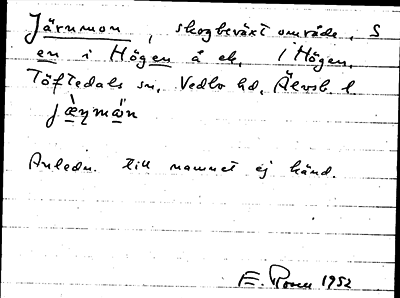 Järnmon, skogbeväxt område, S
en i Högen å ek. 1 Högen,
Töftedals sn, Vedbo hd, Älvsb. l.
jæ̀ηmån
Anledn. till namnet ej känd.
E. Rosen 1952